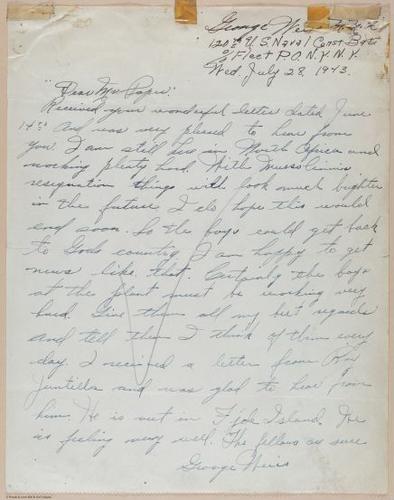 George Weiss
120th U.S. Naval Const. Batt.
c/o Fleet P.O. N.Y. N.Y.
Wed. July 28, 1943.
"Dear Mr. Pope":
Received your wonderful letter dated June
14th And was very pleased to hear from
you. I am still here in North Africa and
working plenty hard. With Mussolinis
resignation things will look much brighter
in the future I do hope this would
end soon. So the boys could get back
to Gods country. I am happy to get
news like that. Certainly the boys
at the plant must be working very
hard. Give them all my best regards
and tell them I think of them every
day. I received a letter from Roy
Juntilla and was glad to hear from
him. He is out in Fiji Island. He
is feeling very well. The fellows as sure
George Weiss